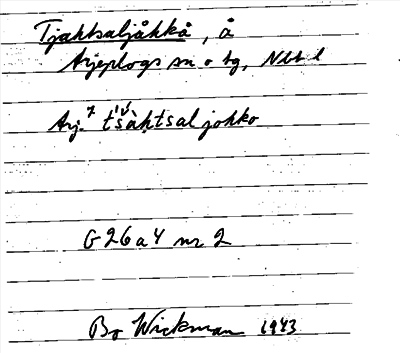 Tjaktsaljåkkå, å
Arjeplogs sn o tg, Nbt l
Arj. tšàktsaljohko
G 26 a 4 nr 2
Bo Wickman 1943